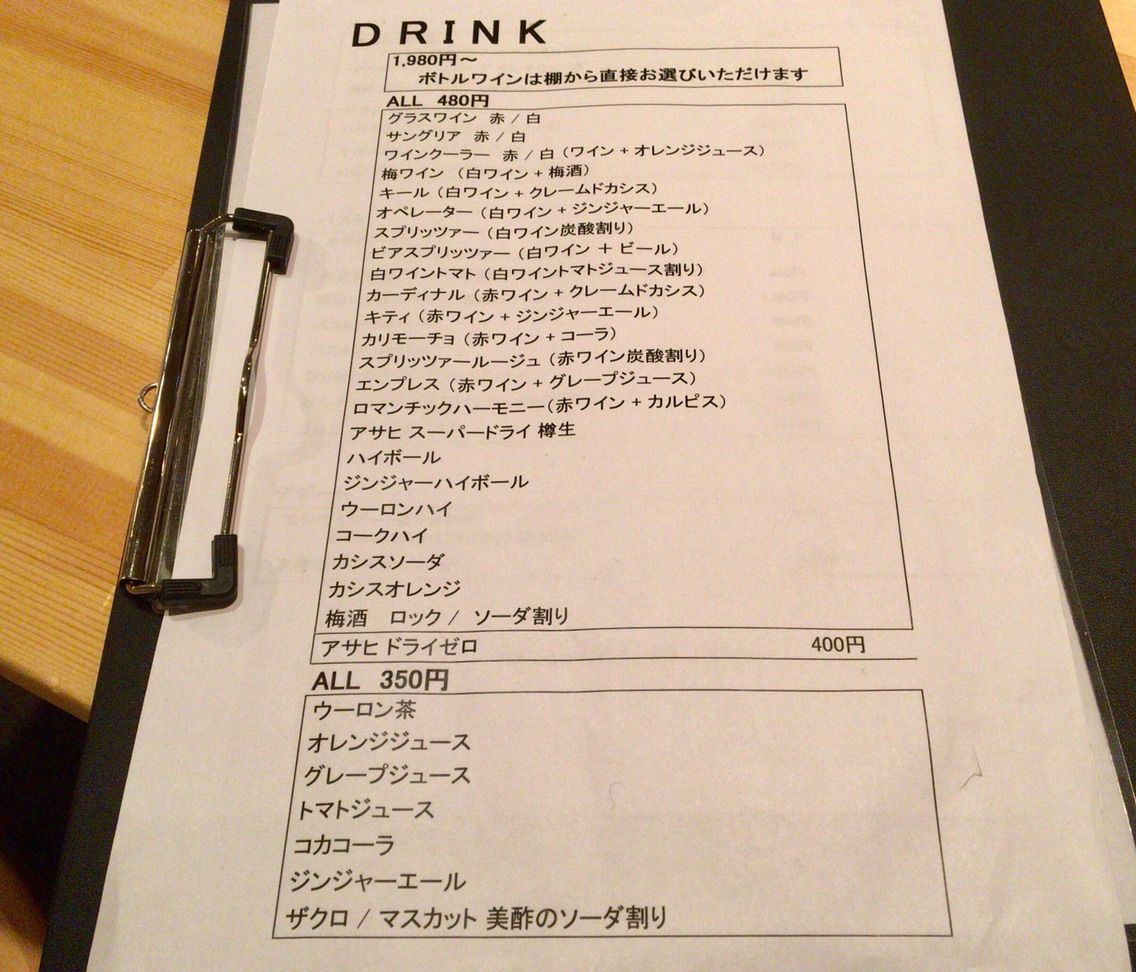 DRINK
1,980円～
ボトルワインは棚から直接お選びいただけます
ALL 480円
グラスワイン 赤 / 白
サングリア 赤 / 白
ワインクーラー 赤 / 白（ワイン + オレンジジュース）
梅ワイン （白ワイン + 梅酒）
キール（白ワイン + クレームドカシス）
オペレーター（白ワイン + ジンジャーエール）
スプリッツァー（白ワイン炭酸割り）
ビアスプリッツァー（白ワイン ＋ ビール）
白ワイントマト（白ワイントマトジュース割り）
カーディナル（赤ワイン + クレームドカシス）
キティ（赤ワイン + ジンジャーエール）
カリモーチョ（赤ワイン + コーラ）
スプリッツァールージュ（赤ワイン炭酸割り）
エンプレス（赤ワイン + グレープジュース）
ロマンチックハーモニー（赤ワイン + カルピス）
アサヒ スーパードライ 樽生
ハイボール
ジンジャーハイボール
ウーロンハイ
コークハイ
カシスソーダ
カシスオレンジ
梅酒 ロック / ソーダ割り
アサヒ ドライゼロ 400円
ALL 350円
ウーロン茶
オレンジジュース
グレープジュース
トマトジュース
コカコーラ
ジンジャーエール
ザクロ / マスカット 美酢のソーダ割り